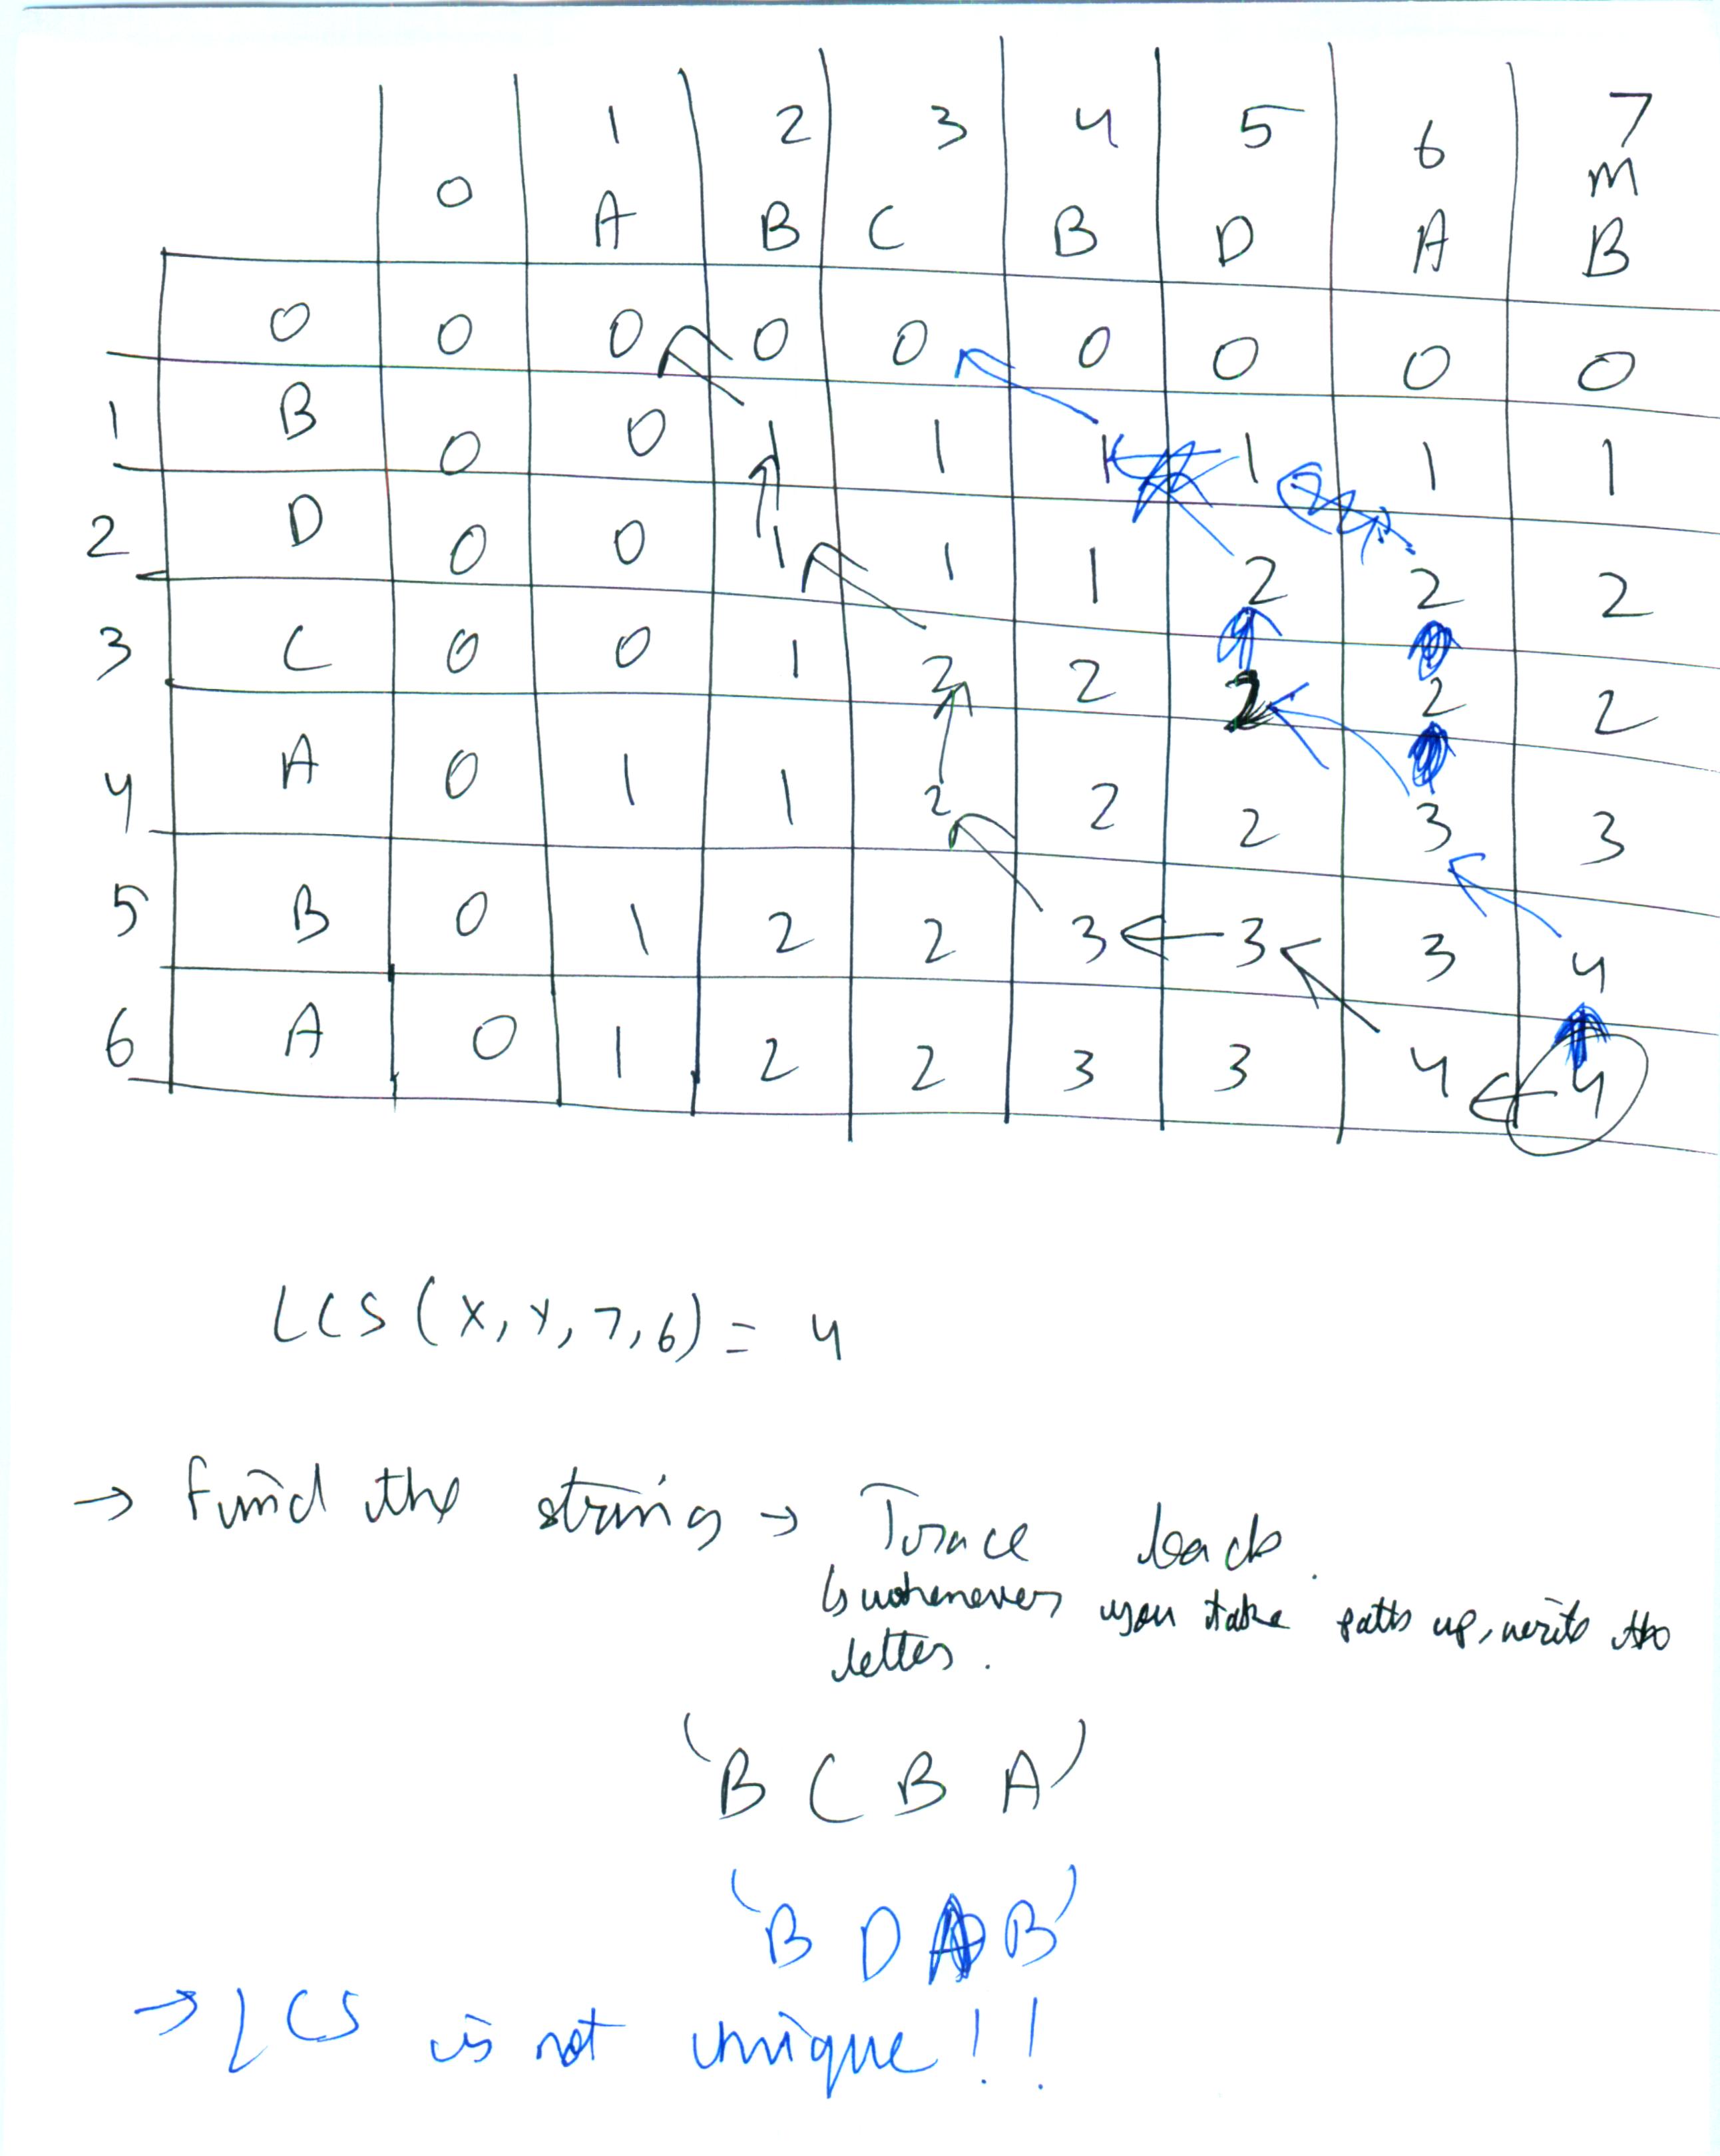 1 2 3 4 5 6 7
0 m
A B C B D A B
0 0 0 0 0 0 0 0 0
1 B 0 0 1 1 1 1 1 1
2 D 0 0 1 1 1 2 2 2
3 C 0 0 1 2 2 2 2 2
4 A 0 1 1 2 2 2 3 3
5 B 0 1 2 2 3 3 3 4
6 A 0 1 2 2 3 3 4 4
LCS (X, Y, 7, 6) = 4
→ Find the string → Trace back.
↳ whenever you take path up, write the
letter.
'B C B A'
'B D A B'
→ LCS is not unique!!